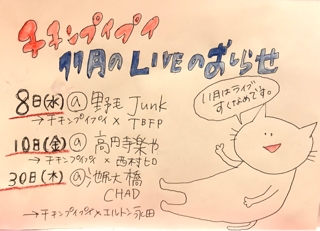 チチンプイプイ
11月のLIVEのおしらせ
8日(水) @ 野毛 Junk
→チチンプイプイ × TBFP
10日(金) @ 高円寺楽や
→チチンプイプイ × 西村ヒロ
30日(木) @ 池ノ大橋
CHAD
→チチンプイプイ×エルトン永田
11月はライブ
すくなめです。